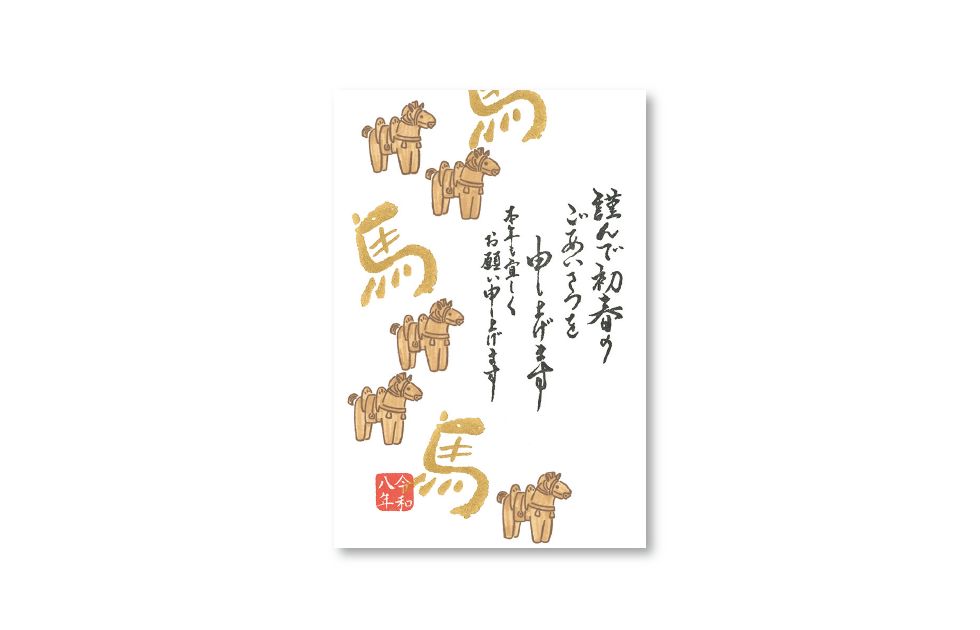 謹んで初春の
ごあいさつを
申し上げます
本年も宜しく
お願い申し上げます
馬
馬
馬
令和
八年